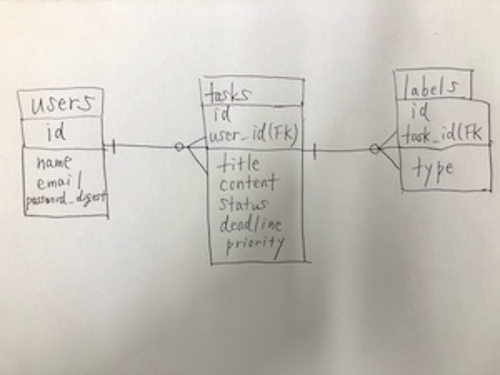 users
id
name
email
password_digest
tasks
id
user_id(FK)
title
content
status
deadline
priority
labels
id
task_id(FK
type